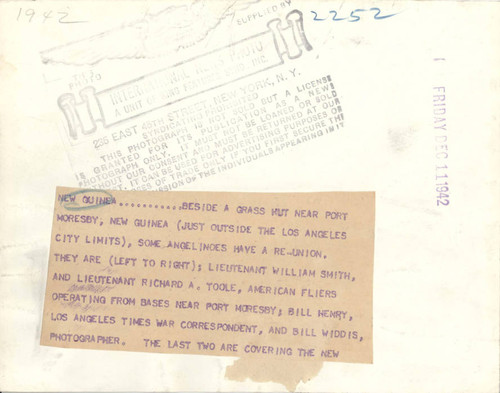 1942
SUPPLIED BY
2252
INTERNATIONAL NEWS PHOTO
A UNIT OF KING FEATURES SYND., INC.
235 EAST 45TH STREET, NEW YORK, N. Y.
THIS PHOTOGRAPH IS NOT SOLD BUT A LICENSE
IS GRANTED FOR ITS PUBLICATION AS A NEWS
PHOTOGRAPH ONLY. IT MUST NOT BE LOANED OR SOLD
WITHOUT OUR CONSENT AND MUST BE RETURNED AT OUR
IT CAN BE USED FOR ADVERTISING PURPOSES OR
PURPOSES OF TRADE ONLY IF YOU FIRST SECURE THE
PERMISSION OF THE INDIVIDUALS APPEARING IN IT
FRIDAY DEC 11 1942
NEW GUINEA............BESIDE A GRASS HUT NEAR PORT
MORESBY, NEW GUINEA (JUST OUTSIDE THE LOS ANGELES
CITY LIMITS), SOME ANGELINOES HAVE A RE-UNION.
THEY ARE (LEFT TO RIGHT); LIEUTENANT WILLIAM SMITH,
AND LIEUTENANT RICHARD A. TOOLE, AMERICAN FLIERS
OPERATING FROM BASES NEAR PORT MORESBY; BILL HENRY,
LOS ANGELES TIMES WAR CORRESPONDENT, AND BILL WIDDIS,
PHOTOGRAPHER. THE LAST TWO ARE COVERING THE NEW